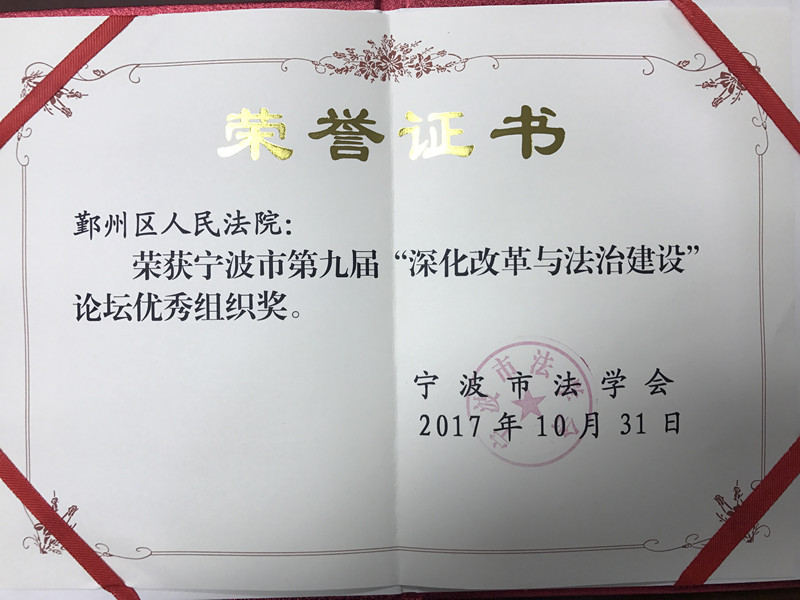 荣誉证书
鄞州区人民法院：
荣获宁波市第九届“深化改革与法治建设”
论坛优秀组织奖。
宁波市法学会
2017年10月31日
宁波市法学会